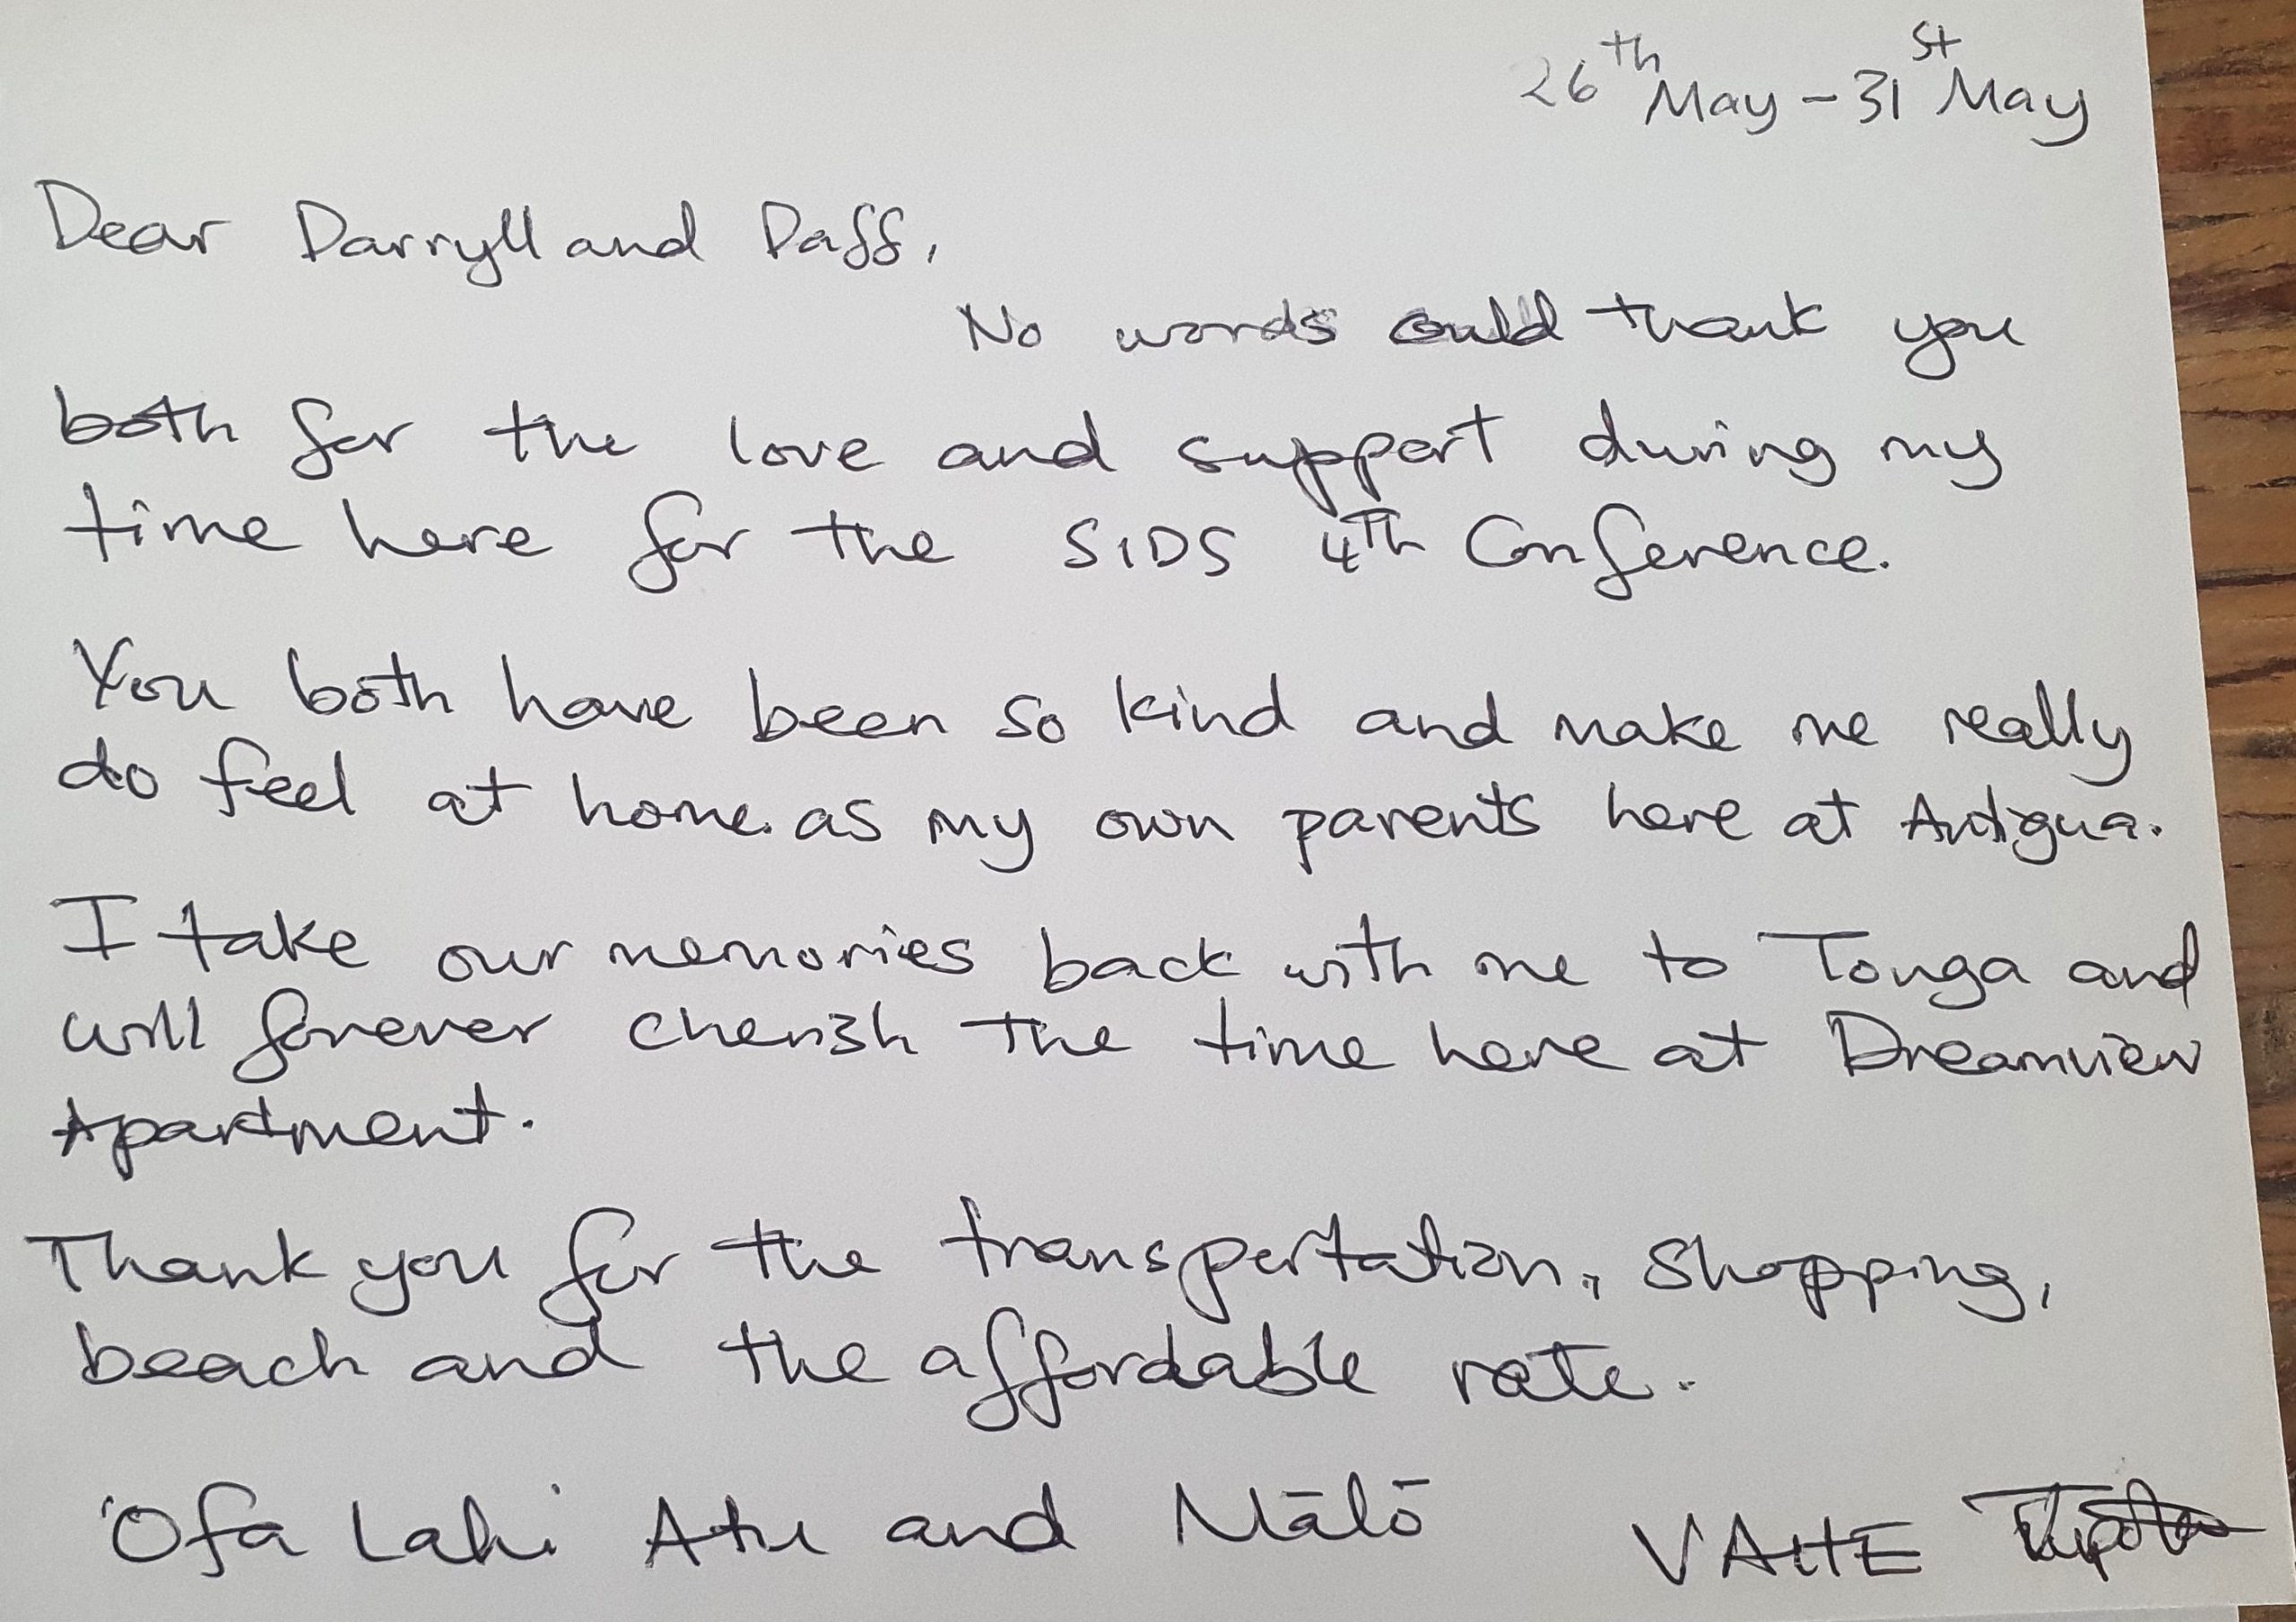 26th May - 31st May
Dear Darryll and Daff,
No words could thank you
both for the love and support during my
time here for the SIDS 4Th Conference.
You both have been so kind and make me really
do feel at home. as my own parents here at Antigua.
I take our memories back with me to Tonga and
will forever cherish the time here at Dreamview
Apartment.
Thank you for the transportation, shopping,
beach and the affordable rate.
'Ofa Lahi Atu and Mālō
VAHE